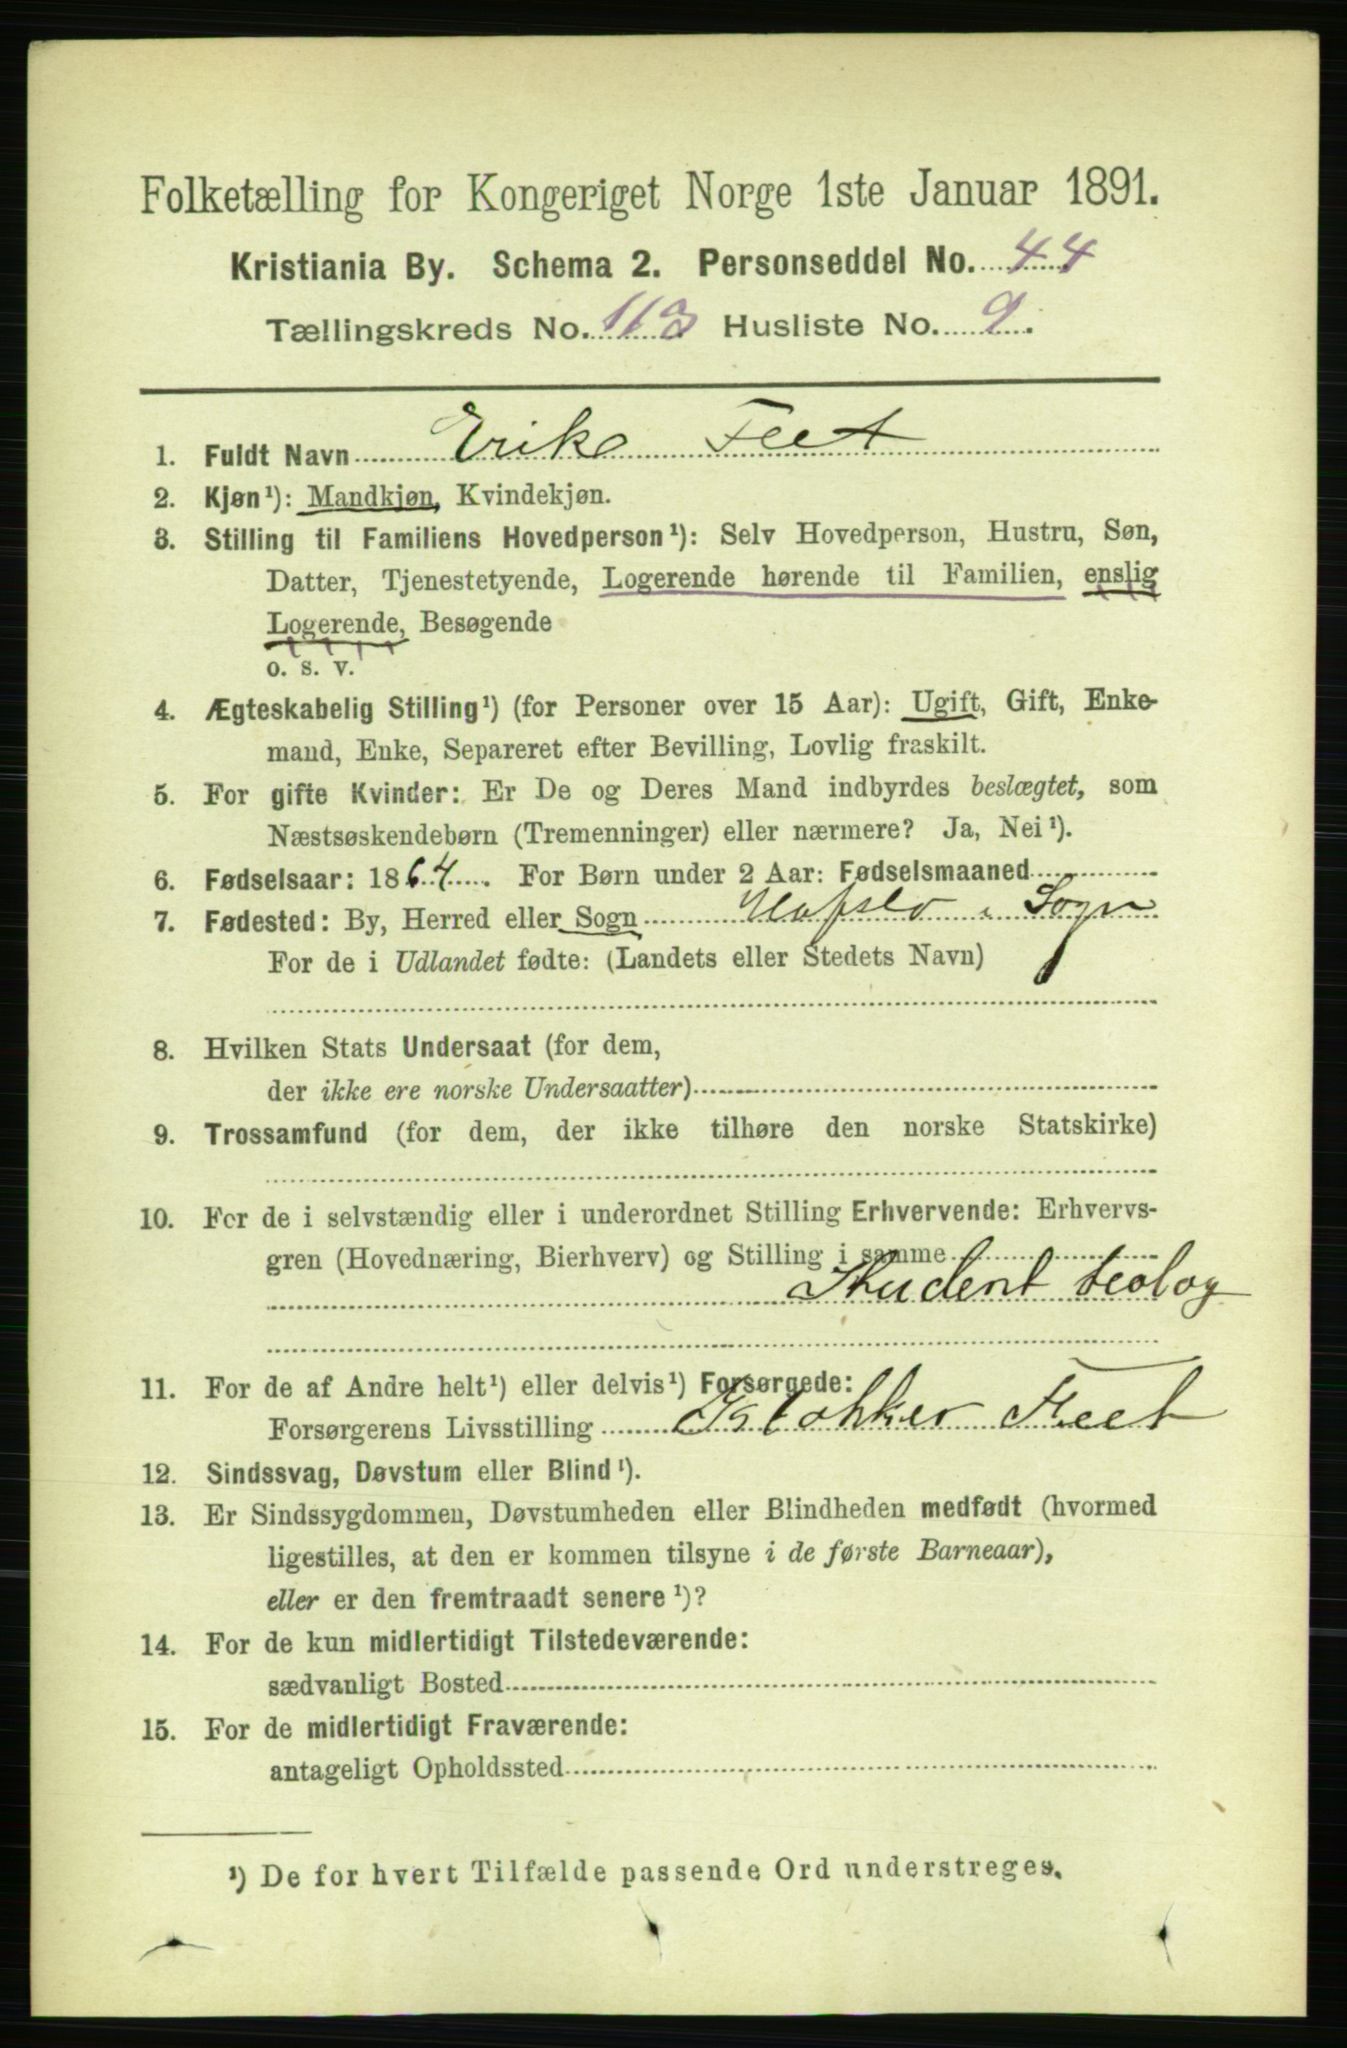 Folketælling for Kongeriget Norge 1ste Januar 1891.
Kristiania By. Schema 2. Personseddel No. 44
Tællingskreds No. 113 Husliste No. 9.
1. Fuldt Navn Erik Feet
2. Kjøn¹): Mandkjøn, Kvindekjøn.
3. Stilling til Familiens Hovedperson¹): Selv Hovedperson, Hustru, Søn,
Datter, Tjenestetyende, Logerende hørende til Familien, enslig
Logerende, Besøgende
o. s. v.
4. Ægteskabelig Stilling¹) (for Personer over 15 Aar): Ugift, Gift, Enke-
mand, Enke, Separeret efter Bevilling, Lovlig fraskilt.
5. For gifte Kvinder: Er De og Deres Mand indbyrdes beslægtet, som
Næstsøskendebørn (Tremenninger) eller nærmere? Ja, Nei¹).
6. Fødselsaar: 1864. For Børn under 2 Aar: Fødselsmaaned
7. Fødested: By, Herred eller Sogn Hafslo i Sogn
For de i Udlandet fødte: (Landets eller Stedets Navn)
8. Hvilken Stats Undersaat (for dem,
der ikke ere norske Undersaatter)
9. Trossamfund (for dem, der ikke tilhøre den norske Statskirke)
10. For de i selvstændig eller i underordnet Stilling Erhvervende: Erhvervs-
gren (Hovednæring, Bierhverv) og Stilling i samme
Student teolog
11. For de af Andre helt¹) eller delvis¹) Forsørgede:
Forsørgerens Livsstilling Feet
12. Sindssvag, Døvstum eller Blind¹).
13. Er Sindssygdommen, Døvstumheden eller Blindheden medfødt (hvormed
ligestilles, at den er kommen tilsyne i de første Barneaar),
eller er den fremtraadt senere¹)?
14. For de kun midlertidigt Tilstedeværende:
sædvanligt Bosted
15. For de midlertidigt Fraværende:
antageligt Opholdssted
¹) De for hvert Tilfælde passende Ord understreges.